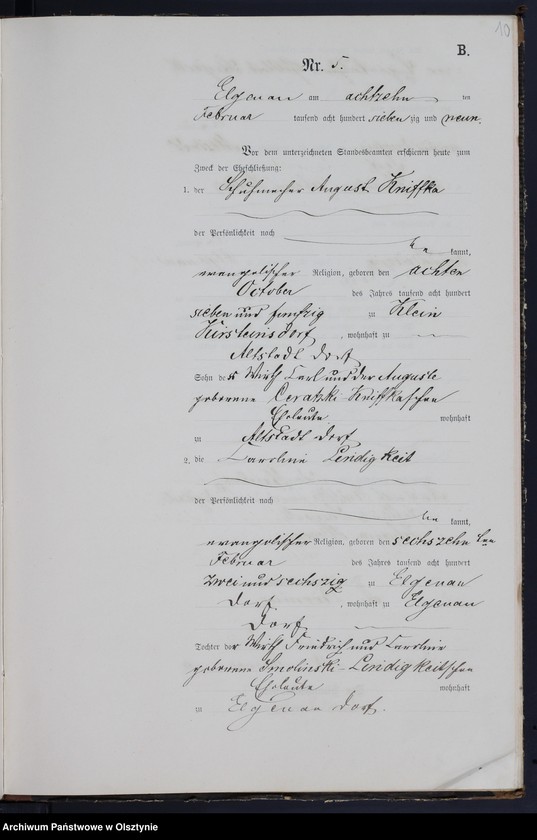 10
B.
Nr. 5.
Elgenau am achtzehn ten
Februar tausend acht hundert sieben zig und neun.
Vor dem unterzeichneten Standesbeamten erschienen heute zum
Zweck der Eheschließung:
1. der Schuhmacher August Kniffka
der Persönlichkeit nach
kannt,
evangelischer Religion, geboren den achten
October des Jahres tausend acht hundert
sieben und funfzig zu Klein
, wohnhaft zu
Altstadt Dorf
Sohn des Wirth Carl und der Auguste
geborene Kniffkaschen
Eheleute wohnhaft
zu Altstadt Dorf
2. die Caroline Lendigkeit
der Persönlichkeit nach
kannt,
evangelischer Religion, geboren den sechszehn ten
Februar des Jahres tausend acht hundert
zwei und sechszig zu Elgenau
Dorf, wohnhaft zu Elgenau
Dorf
Tochter der Wirth Friedrich und Caroline
geborene Smolinski-Lendigkeitschen
Eheleute wohnhaft
zu Elgenau Dorf.
Archiwum Państwowe w Olsztynie